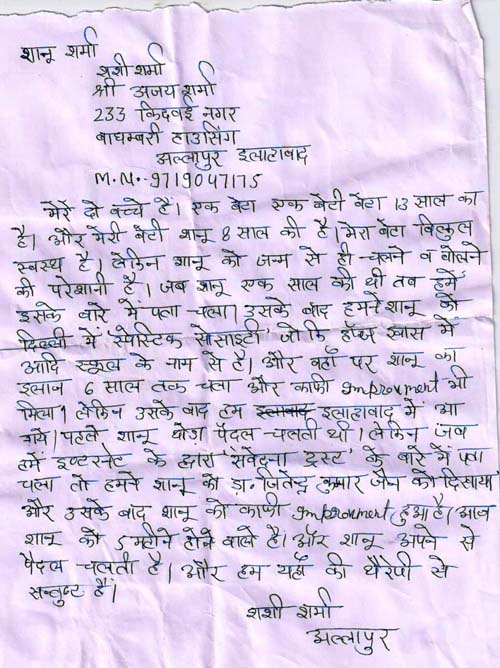 शानू शर्मा
शशी शर्मा
श्री अजय शर्मा
233 किदवई नगर
बाघम्बरी हाउसिंग
अल्लापुर इलाहाबाद
M.N.-9719047175
मेरे दो बच्चे हैं। एक बेटा एक बेटी बेटा 13 साल का
है। और मेरी बेटी शानू 8 साल की है। मेरा बेटा बिल्कुल
स्वस्थ है। लेकिन शानू को जन्म से ही चलने व बोलने
की परेशानी है। जब शानू एक साल की थी तब हमें
इसके बारे में पता चला। उसके बाद हमने शानू को
दिल्ली में 'स्पेस्टिक सोसाइटी' जो कि हॉज खास में
आदि स्कूल के नाम से है। और वहाँ पर शानू का
इलाज 6 साल तक चला और काफी Improvment भी
मिला। लेकिन उसके बाद हम इलाहाबाद में आ
गये। पहले शानू थोड़ा पैदल चलती थी। लेकिन जब
हमें इण्टरनेट के द्वारा 'संवेदना ट्रस्ट' के बारे में पता
चला तो हमने शानू को डा. जितेन्द्र कुमार जैन को दिखाया
और उसके बाद शानू को काफी Improvment हुआ है। आज
शानू को 5 महीने होने वाले है। और शानू अपने से
पैदल चलती है। और हम यहाँ की थैरेपी से
सन्तुष्ट हैं।
शशी शर्मा
अल्लापुर